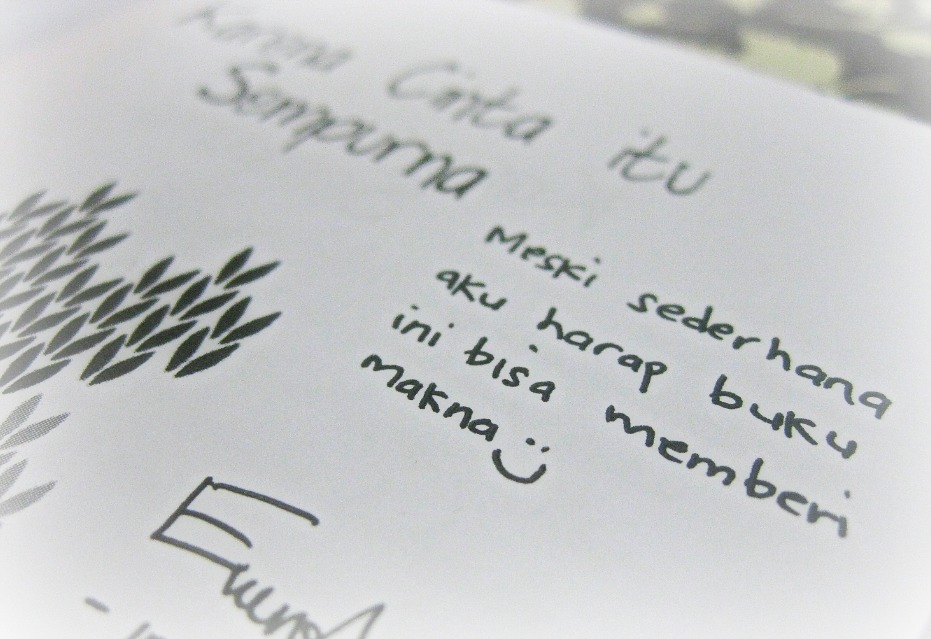 Karena Cinta itu
Sempurna
Meski sederhana
aku harap buku
ini bisa memberi
makna